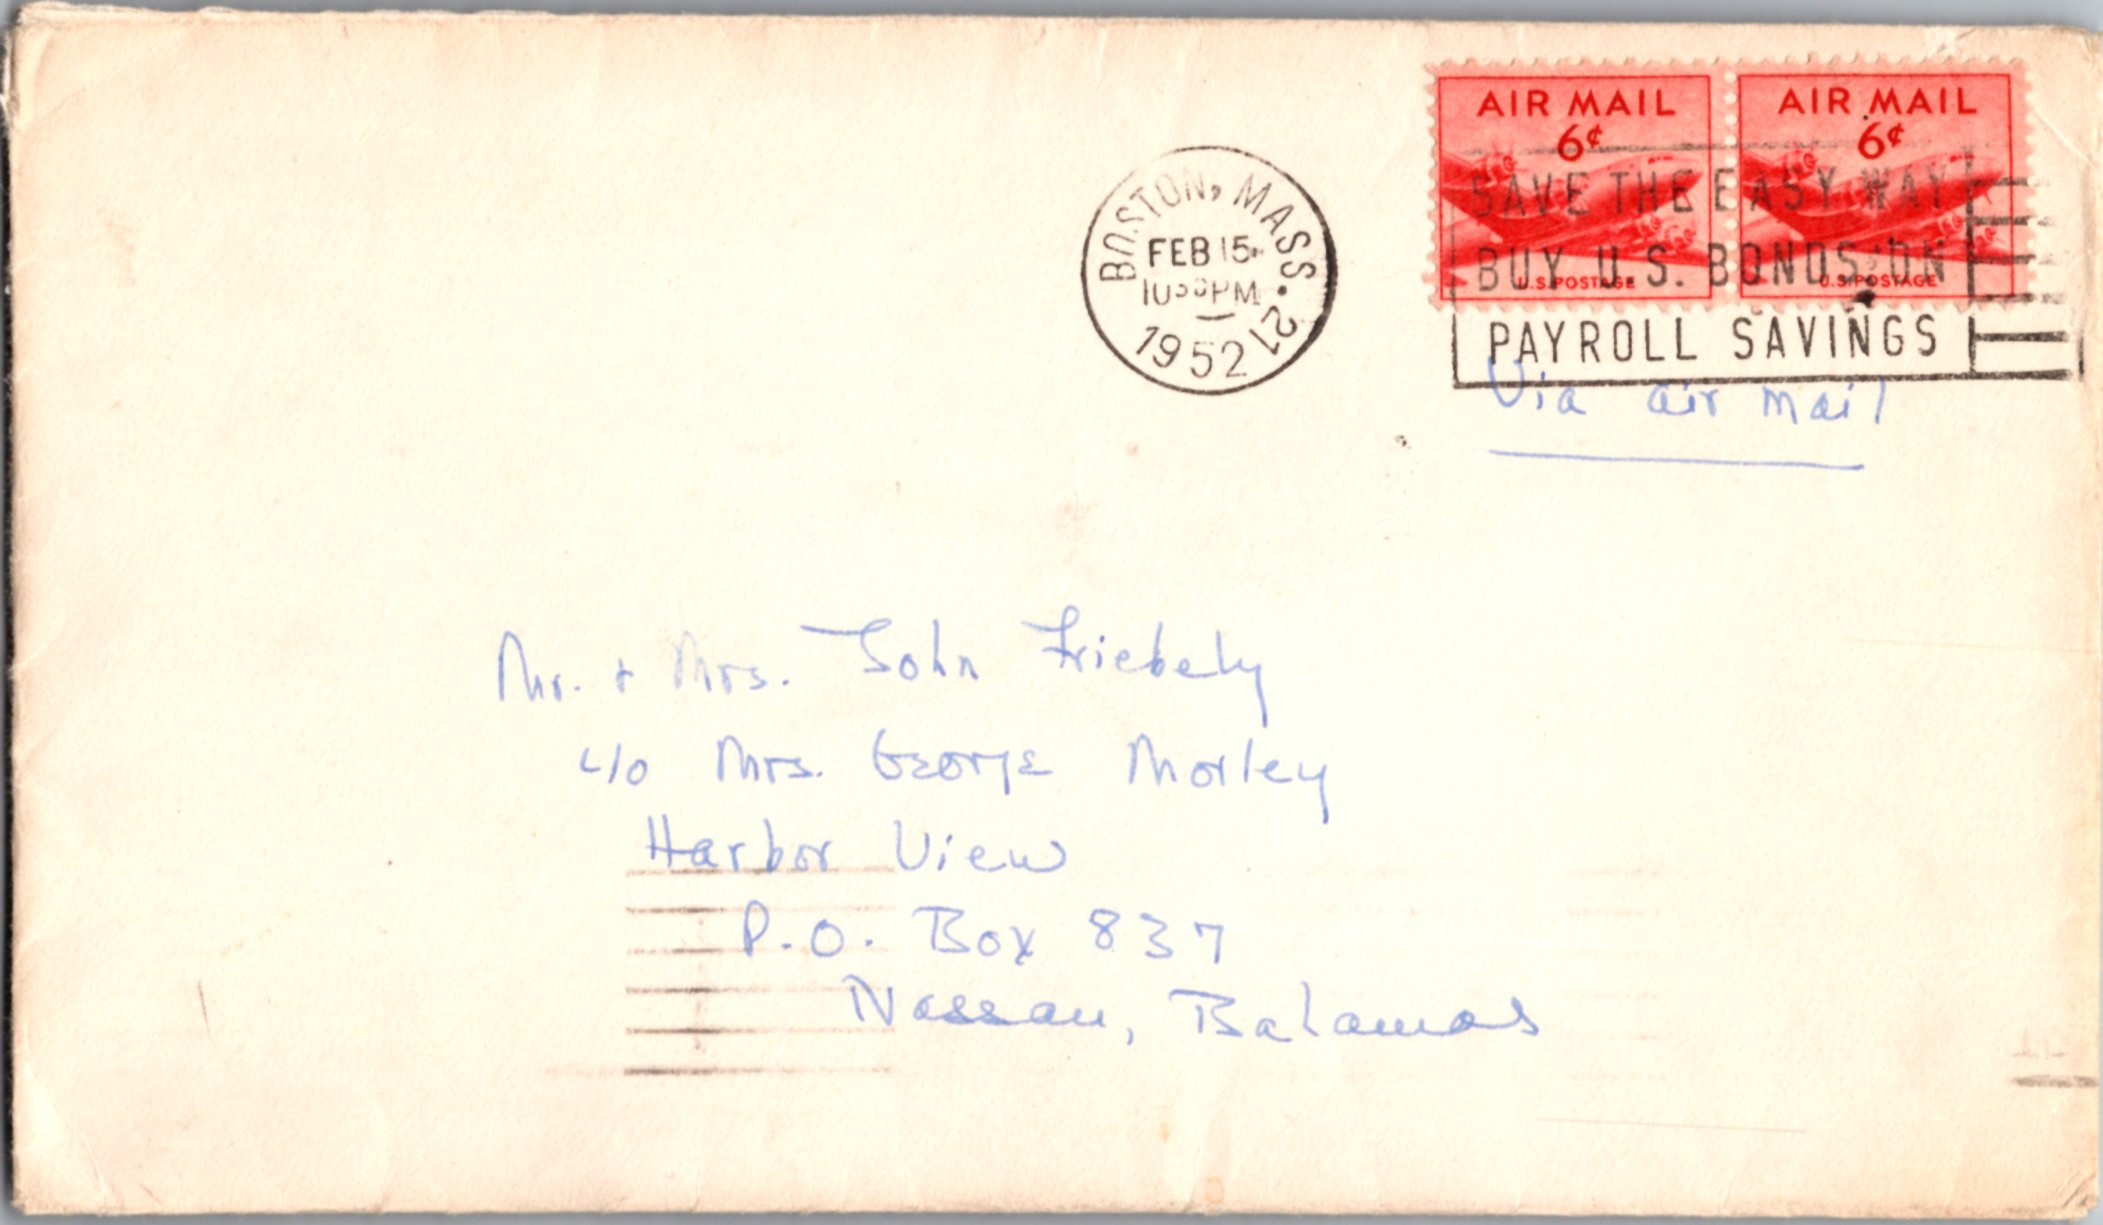 AIR MAIL
6¢
U.S. POSTAGE
AIR MAIL
6¢
U.S. POSTAGE
BOSTON, MASS. 21
FEB 15
PM
1952
SAVE THE EASY WAY
BUY U.S. BONDS ON
PAYROLL SAVINGS
Via air mail
Mr. + Mrs. John Friebely
c/o Mrs. George Morley
Harbor View
P.O. Box 837
Nassau, Bahamas